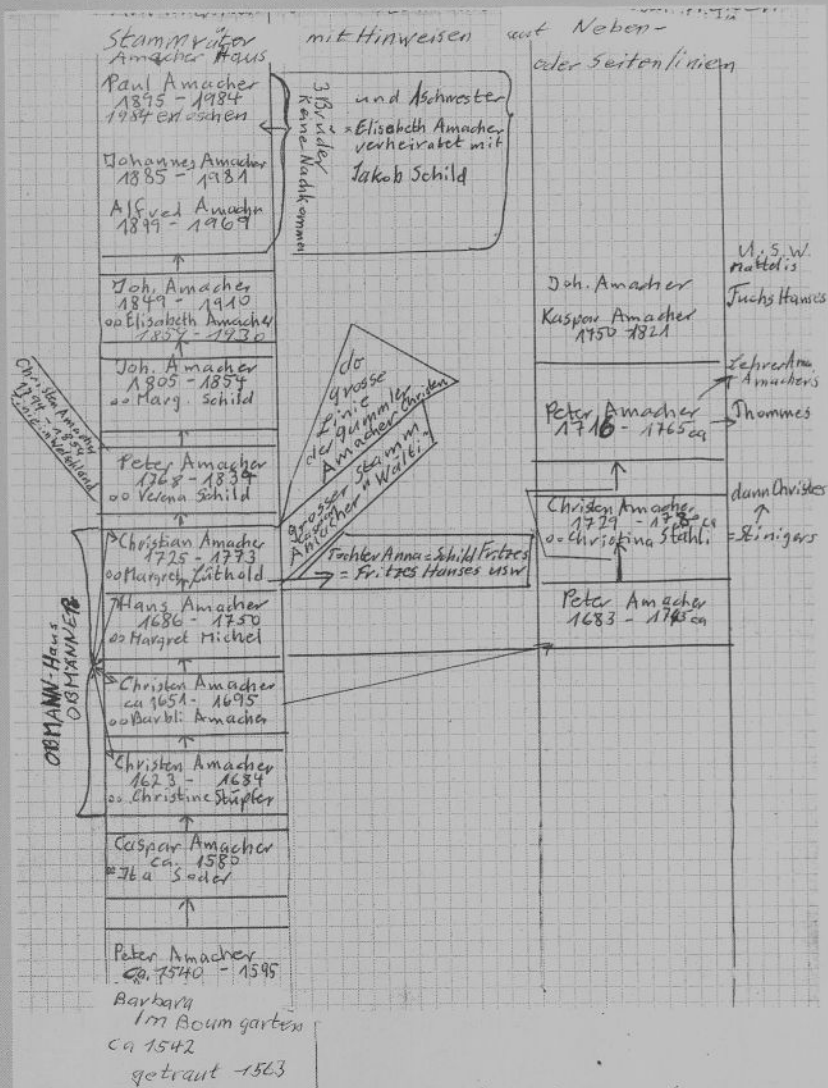 Stammväter mit Hinweisen auf Neben-
Amacher Haus oder Seitenlinien
Paul Amacher
1895 - 1984
1984 erloschen
Johannes Amacher
1885 - 1981
Alfred Amacher
1899 - 1969
3 Brüder
keine Nachkommen
und 1 Schwester
= Elisabeth Amacher
verheiratet mit
Jakob Schild
Joh. Amacher
1849 - 1910
oo Elisabeth Amacher
1857 - 1930
Joh. Amacher
1805 - 1854
oo Marg. Schild
Christen Amacher
1794 - 1854
Linie in Welschland
Peter Amacher
1768 - 1834
oo Verena Schild
do
grosse
Linie
der Gummler
Amacher Christen
Grosser Stamm
Kaspar
Amacher u Wälti
Christian Amacher
1725 - 1773
oo Margret Lüthold
Tochter Anna = Schild Fritzes
= Fritzes Hanses usw
Hans Amacher
1686 - 1750
oo Margret Michel
Christen Amacher
ca 1651 - 1695
oo Barbli Amacher
Christen Amacher
1623 - 1684
oo Christine Stupfer
OBMANN-Haus
OBMÄNNER
Caspar Amacher
ca. 1580
Ita Soder
Peter Amacher
ca. 1540 - 1595
Barbara
Im Boumgarten
ca 1542
getraut 1563
Joh. Amacher
Kaspar Amacher
1750 - 1821
Peter Amacher
1716 - 1765 ca
Christen Amacher
1729 - ca
oo Christina Stähli
Peter Amacher
1683 - 1745 ca
U.S.W.
Mattelis
Fuchs Hanses
Lehrer Ama.
Amachers
Thommes
dann Christes
= Stinigers